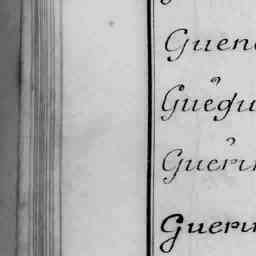 Guen
Guégu
Guérin
Guerin